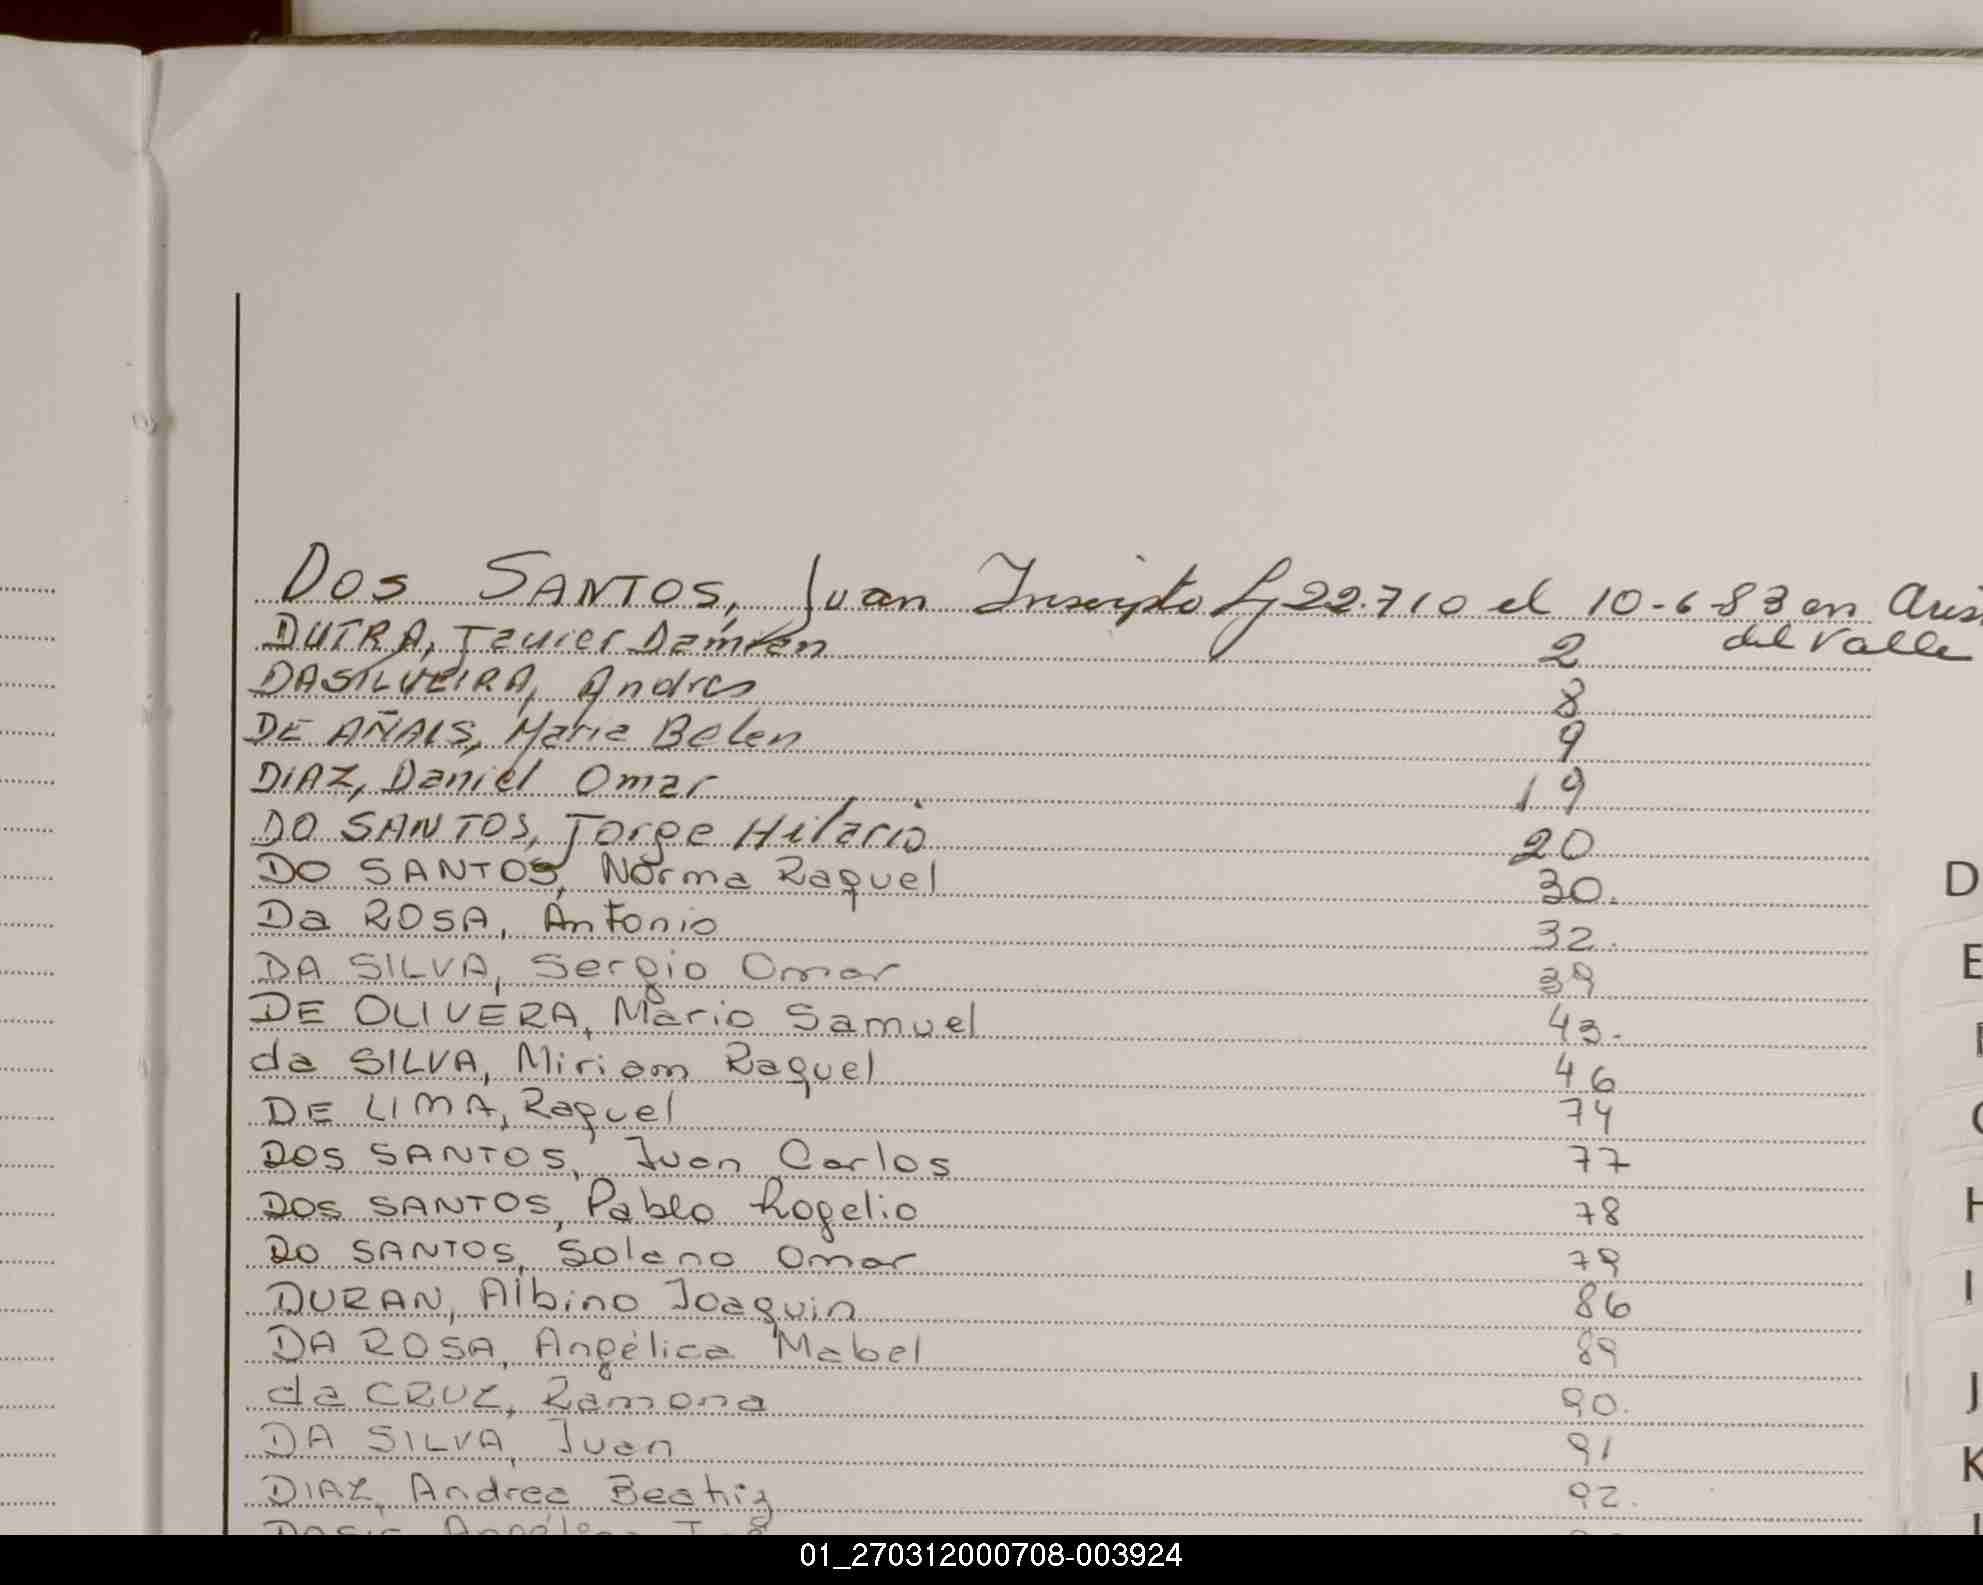 DOS SANTOS, Juan Inscripto Ley 22.710 el 10-6-83 en
del Valle
DUTRA, Javier Damián 2
DASILVEIRA, Andres 8
DE AÑAIS, Maria Belen 9
DIAZ, Daniel Omar 19
DO SANTOS, Jorge Hilario 20
DO SANTOS, Norma Raquel 30.
Da ROSA, Antonio 32.
DA SILVA, Sergio Omar 39
DE OLIVERA, Mario Samuel 43.
da SILVA, Miriam Raquel 46
DE LIMA, Raquel 74
DOS SANTOS, Juan Carlos 77
DOS SANTOS, Pablo Rogelio 78
DO SANTOS, Solano Omar 79
DURAN, Albino Joaquin 86
DA ROSA, Angélica Mabel 89
da CRUZ, Ramona 90.
DA SILVA, Juan 91
DIAZ, Andrea Beatriz 92.
D
E
H
I
J
K
01_270312000708-003924